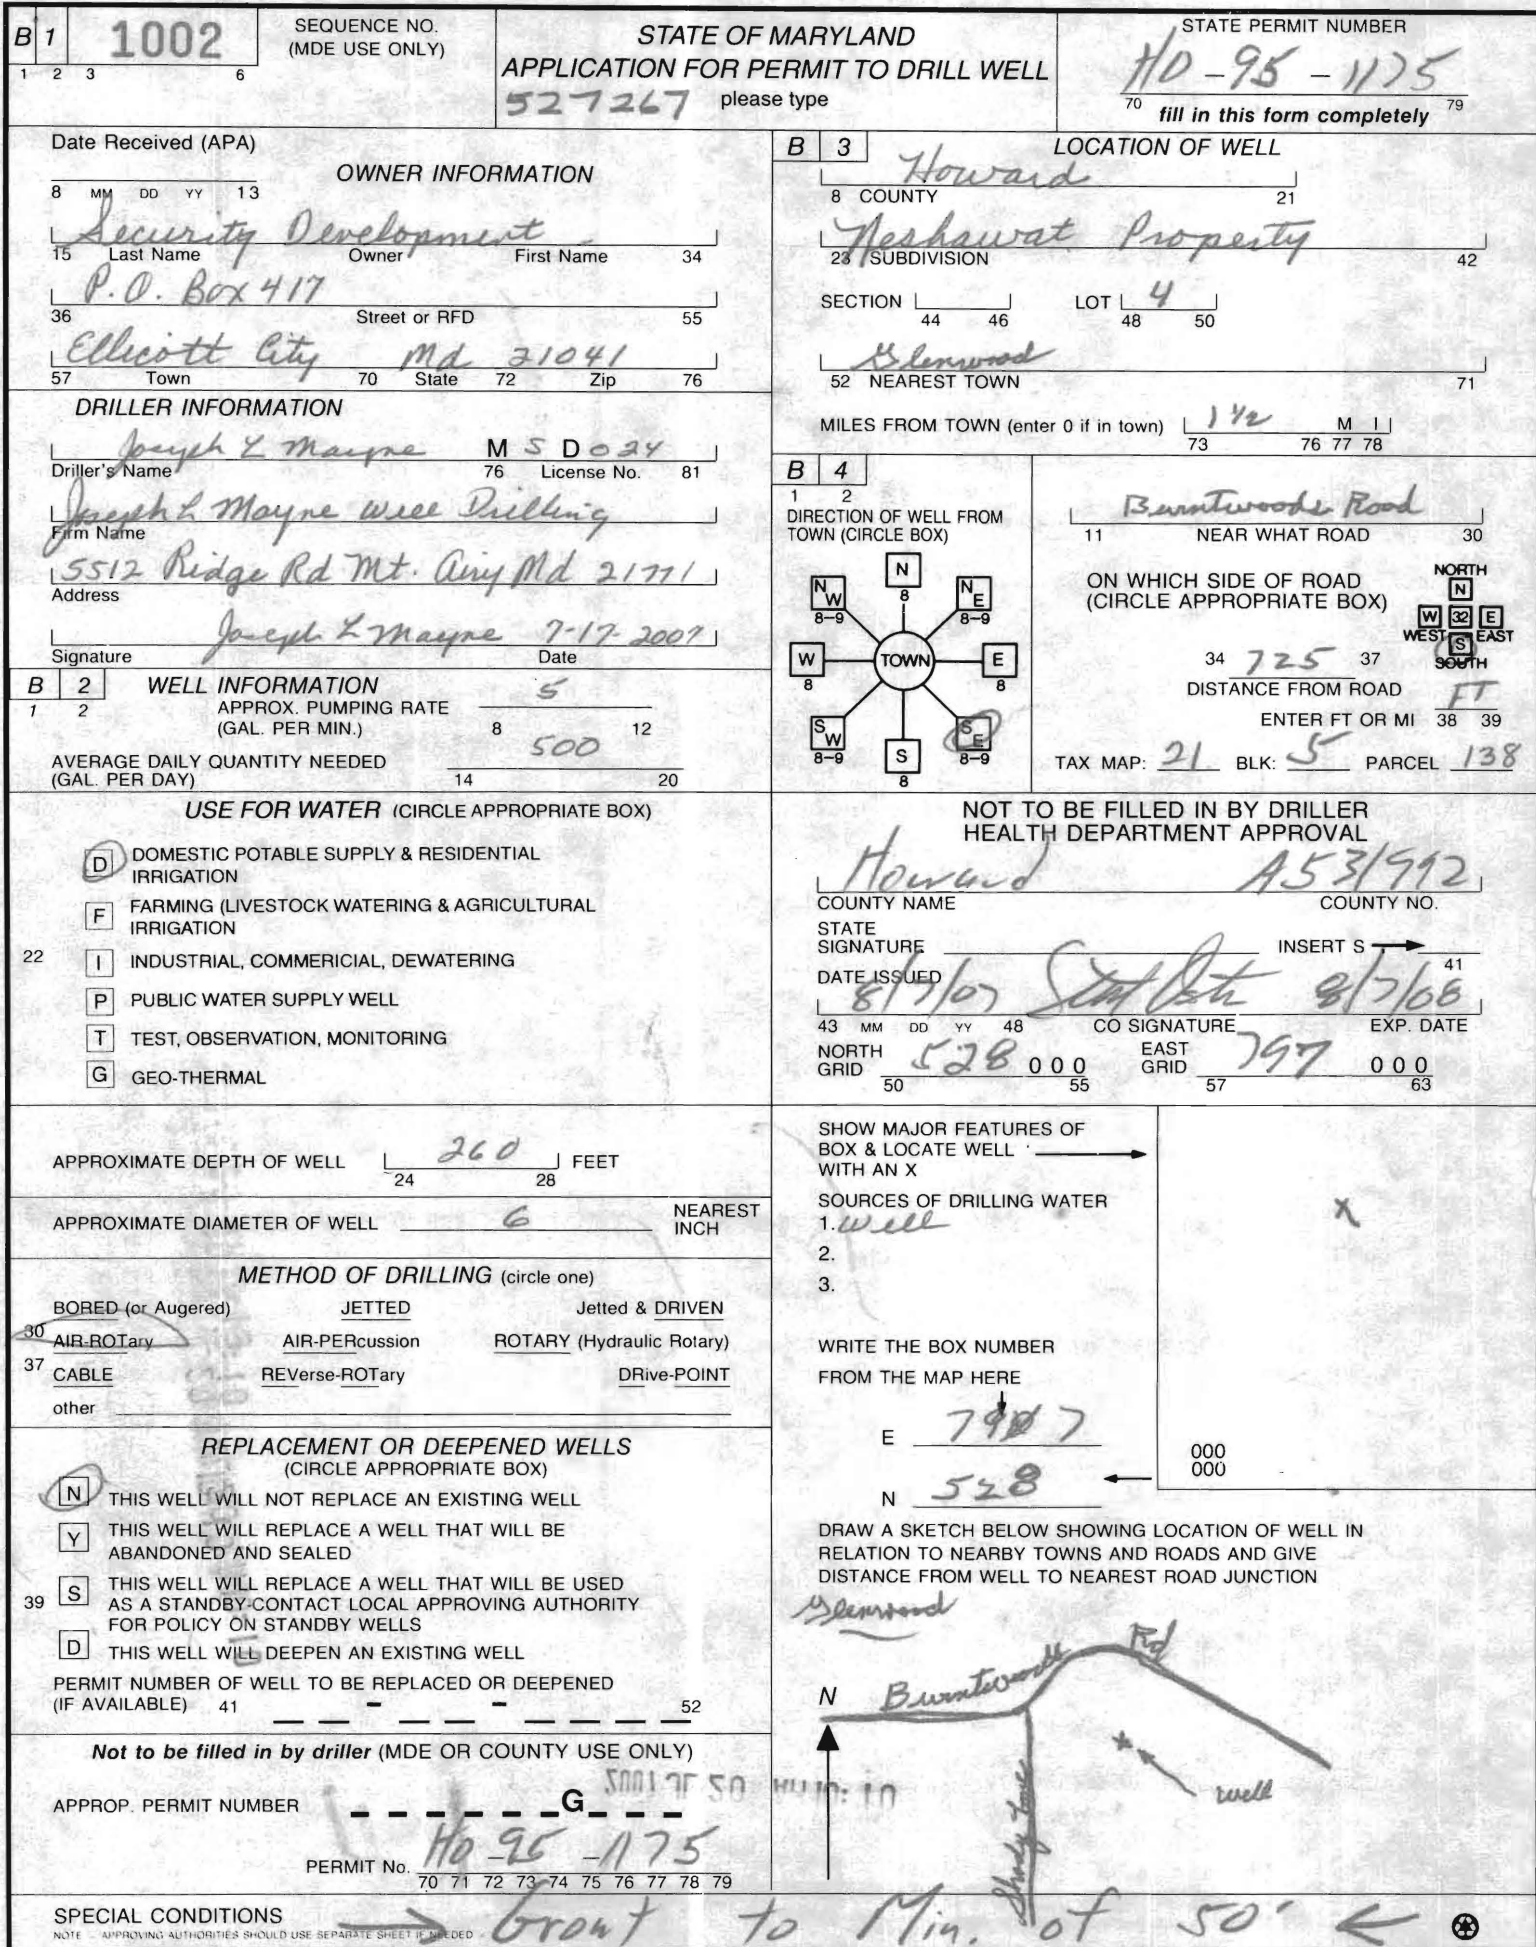 B 1 1002 SEQUENCE NO. (MDE USE ONLY)
1 2 3 6
STATE OF MARYLAND
APPLICATION FOR PERMIT TO DRILL WELL
527267 please type
STATE PERMIT NUMBER
HO-95-1175
70 79
fill in this form completely
Date Received (APA)
8 MM DD YY 13
OWNER INFORMATION
Security Development
15 Last Name Owner First Name 34
P.O. Box 417
36 Street or RFD 55
Ellicott City Md 21041
57 Town 70 State 72 Zip 76
DRILLER INFORMATION
Joseph L Mayne M S D 024
Driller's Name 76 License No. 81
Joseph L Mayne Well Drilling
Firm Name
5512 Ridge Rd Mt. Airy Md 21771
Address
Joseph L Mayne 7-17-2007
Signature Date
B 2 WELL INFORMATION
1 2
APPROX. PUMPING RATE 5
(GAL. PER MIN.) 8 12
AVERAGE DAILY QUANTITY NEEDED 500
(GAL. PER DAY) 14 20
USE FOR WATER (CIRCLE APPROPRIATE BOX)
D DOMESTIC POTABLE SUPPLY & RESIDENTIAL
IRRIGATION
F FARMING (LIVESTOCK WATERING & AGRICULTURAL
IRRIGATION
22
I INDUSTRIAL, COMMERICIAL, DEWATERING
P PUBLIC WATER SUPPLY WELL
T TEST, OBSERVATION, MONITORING
G GEO-THERMAL
APPROXIMATE DEPTH OF WELL 260 FEET
24 28
APPROXIMATE DIAMETER OF WELL 6 NEAREST
INCH
METHOD OF DRILLING (circle one)
BORED (or Augered) JETTED Jetted & DRIVEN
30 AIR-ROTary AIR-PERcussion ROTARY (Hydraulic Rotary)
37 CABLE REVerse-ROTary DRive-POINT
other
REPLACEMENT OR DEEPENED WELLS
(CIRCLE APPROPRIATE BOX)
N THIS WELL WILL NOT REPLACE AN EXISTING WELL
Y THIS WELL WILL REPLACE A WELL THAT WILL BE
ABANDONED AND SEALED
39 S THIS WELL WILL REPLACE A WELL THAT WILL BE USED
AS A STANDBY-CONTACT LOCAL APPROVING AUTHORITY
FOR POLICY ON STANDBY WELLS
D THIS WELL WILL DEEPEN AN EXISTING WELL
PERMIT NUMBER OF WELL TO BE REPLACED OR DEEPENED
(IF AVAILABLE) 41 - - 52
Not to be filled in by driller (MDE OR COUNTY USE ONLY)
APPROP. PERMIT NUMBER G
PERMIT No. HO-95-1175
70 71 72 73 74 75 76 77 78 79
B 3 LOCATION OF WELL
Howard
8 COUNTY 21
Neshawat Property
23 SUBDIVISION 42
SECTION LOT 4
44 46 48 50
Glenwood
52 NEAREST TOWN 71
MILES FROM TOWN (enter 0 if in town) 1 1/2 M I
73 76 77 78
B 4
1 2
DIRECTION OF WELL FROM
TOWN (CIRCLE BOX)
N
8
NW NE
8-9 8-9
W TOWN E
8 8
SW S SE
8-9 8 8-9
Burntwoods Road
11 NEAR WHAT ROAD 30
ON WHICH SIDE OF ROAD
(CIRCLE APPROPRIATE BOX)
NORTH
N
W 32 E
WEST EAST
S
SOUTH
34 725 37
DISTANCE FROM ROAD
ENTER FT OR MI FT
38 39
TAX MAP: 21 BLK: 5 PARCEL 138
NOT TO BE FILLED IN BY DRILLER
HEALTH DEPARTMENT APPROVAL
Howard A531992
COUNTY NAME COUNTY NO.
STATE
SIGNATURE INSERT S
41
DATE ISSUED
8/7/07 8/7/08
43 MM DD YY 48 CO SIGNATURE EXP. DATE
NORTH GRID 528 000 EAST GRID 797 000
50 55 57 63
SHOW MAJOR FEATURES OF
BOX & LOCATE WELL
WITH AN X
X
SOURCES OF DRILLING WATER
1. Well
2.
3.
WRITE THE BOX NUMBER
FROM THE MAP HERE
E 797
N 528
000
000
DRAW A SKETCH BELOW SHOWING LOCATION OF WELL IN
RELATION TO NEARBY TOWNS AND ROADS AND GIVE
DISTANCE FROM WELL TO NEAREST ROAD JUNCTION
Glenwood
N Burntwoods Rd
X
well
Shady Lane
SPECIAL CONDITIONS Grout to Min. of 50'
NOTE - APPROVING AUTHORITIES SHOULD USE SEPARATE SHEET IF NEEDED